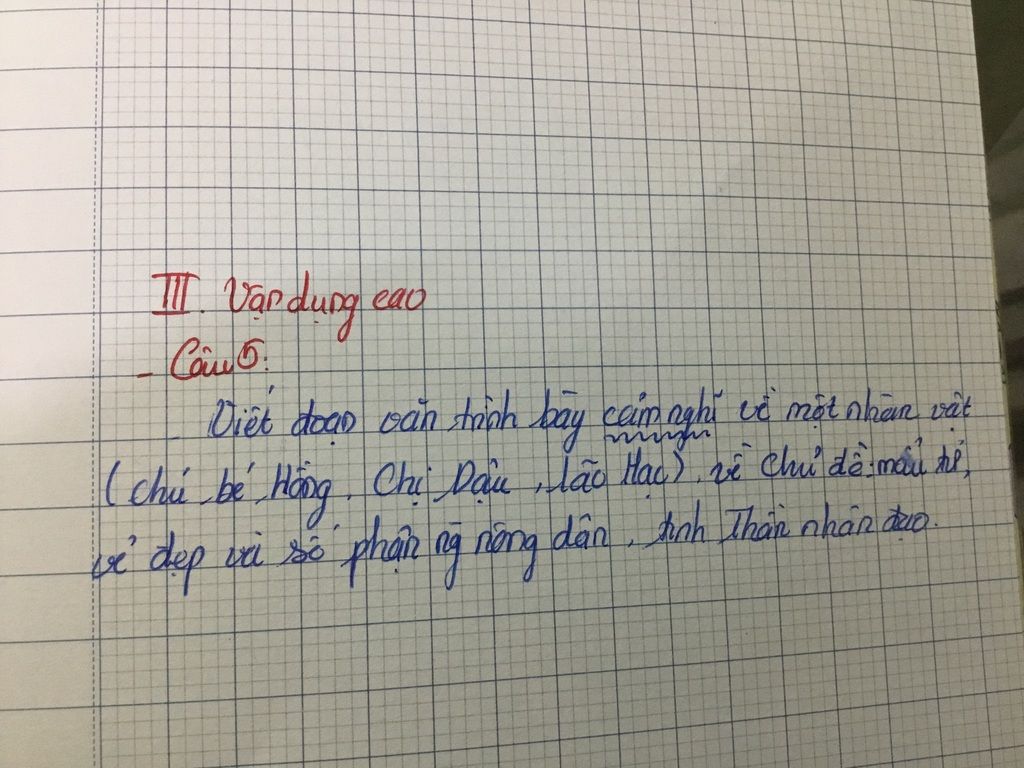 III. Vận dụng cao
- Câu 5:
- Viết đoạn văn trình bày cảm nghĩ về một nhân vật
(chú bé Hồng, Chị Dậu, lão Hạc), về chủ đề: mẫu tử,
vẻ đẹp và số phận ng nông dân, tinh Thần nhân đạo.